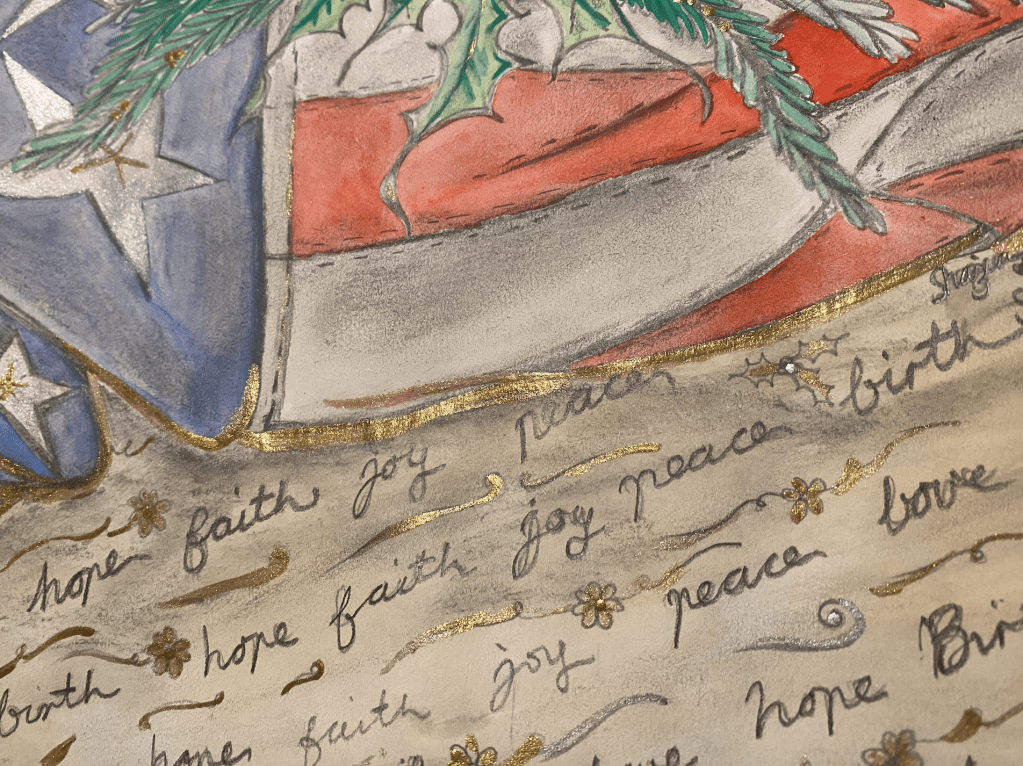 peace
birth
hope faith joy
joy peace
love
birth hope faith
peace
hope Bir
hope faith joy